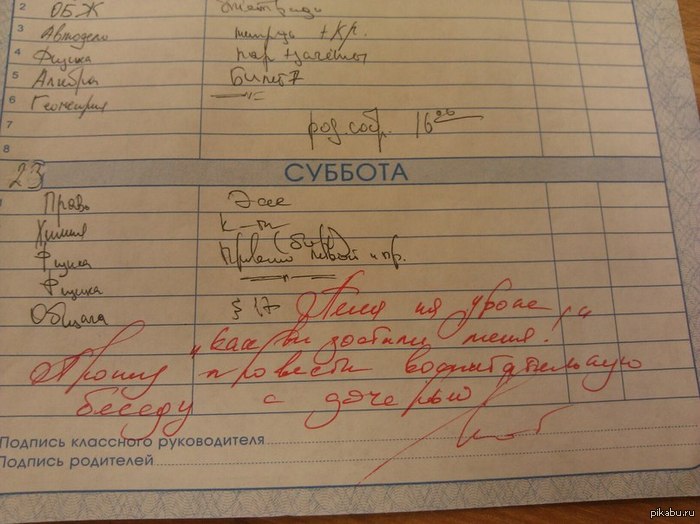 2 ОБЖ тетрадь
3 Автодело + к.р.
4 Физика пар. + зачёты
5 Алгебра Билет 7
6 Геометрия —"—
7 род. собр. 16 00
8
23 СУББОТА
Право Эссе
Химия к
Физика Правило левой и пр.
Физика —"—
Общага § 17 Пела на уроке
„как вы достали меня!"
Прошу провести воспитательную
беседу с дочерью
Подпись классного руководителя
Подпись родителей
pikabu.ru